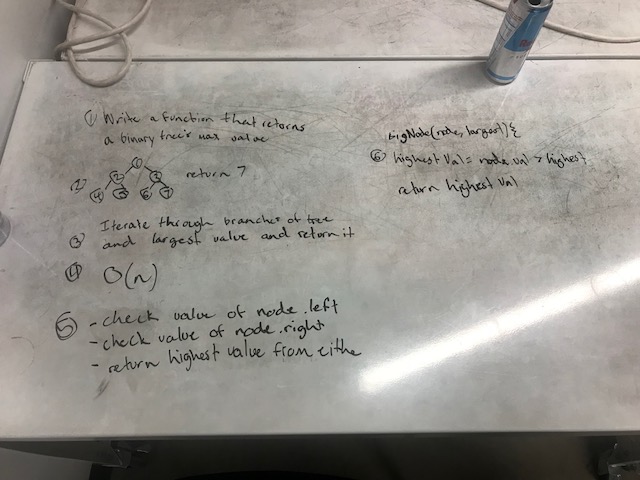 ① Write a function that returns
a binary tree's max value
②
1
2 3
4 5 6 7
return 7
③ Iterate through branches of tree
and largest value and return it
④ O(n)
⑤ - check value of node.left
- check value of node.right
- return highest value from eithe
bigNode(node, largest){
⑥ highest Val = node.val > highest
return highest Val